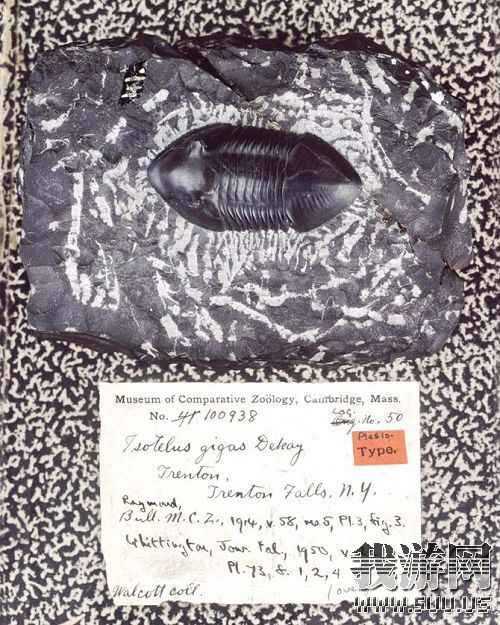 Museum of Comparative Zoölogy, Cambridge, Mass.
No. 100938 No. 50
Isotelus gigas Dekay
Plesio-
Type.
Trenton,
Trenton Falls, N.Y.
Raymond,
Bull. M.C.Z., 1914, v. 58, no. 5, Pl. 3, fig. 3.
Whittington, Jour. Pal., 1950, v.
Pl. 73, f. 1, 2, 4
Walcott coll. (ove
我游网
www.5uu.us